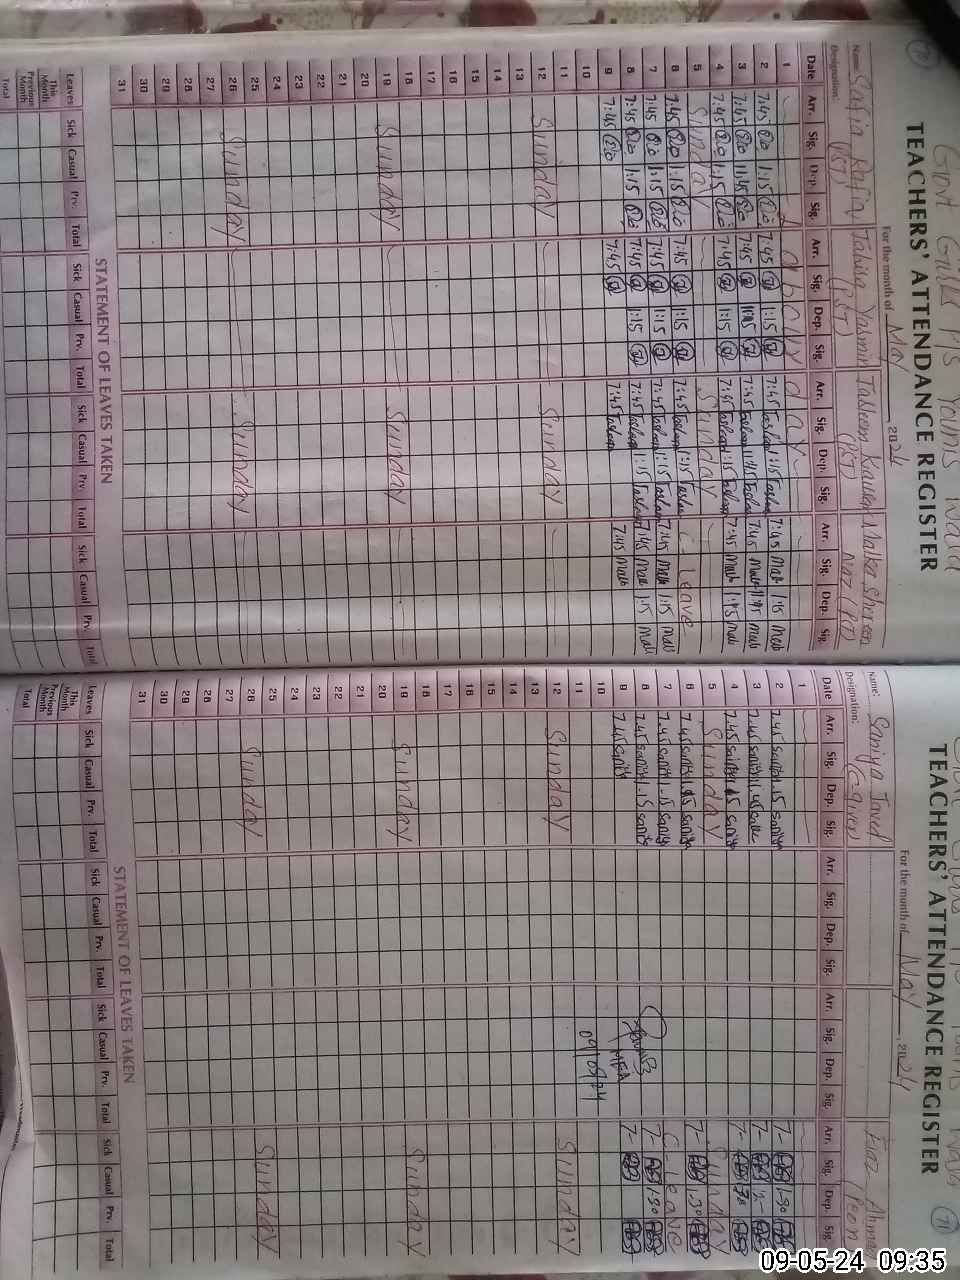 Govt Girls P/S Younis Wala
TEACHERS' ATTENDANCE REGISTER
For the month of May, 2024
Name: Safia Rafiq Tabina Yasmin Tasleem Kausar Malka Shireen
Designation: (PST) (PST) (PST) Naz (PST)
Date Arr. Sig. Dep. Sig. Arr. Sig. Dep. Sig. Arr. Sig. Dep. Sig. Arr. Sig. Dep. Sig.
1
2 7:45 1:15 7:45 1:15 7:45 Tasleem 1:15 Tasleem 7:45 Mal 1:15 Mal
3 7:45 11:45 7:45 11:45 7:45 Tasleem 11:45 Tasleem 7:45 Mal 11:45 Mal
4 7:45 1:15 7:45 1:15 7:45 Tasleem 1:15 Tasleem 7:45 Mal 1:15 Mal
5 Sunday Sunday
6 7:45 1:15 7:45 1:15 7:45 Tasleem 1:15 Tasleem C-Leave
7 7:45 1:15 7:45 1:15 7:45 Tasleem 1:15 Tasleem 7:45 Mal 1:15 Mal
8 7:45 1:15 7:45 1:15 7:45 Tasleem 1:15 Tasleem 7:45 Mal 1:15 Mal
9 7:45 7:45 7:45 Tasleem 7:45 Mal
10
11
12 Sunday Sunday
13
14
15
16
17
18
19 Sunday Sunday
20
21
22
23
24
25
26 Sunday Sunday
27
28
29
30
31
STATEMENT OF LEAVES TAKEN
Leaves Sick Casual Prv. Total Sick Casual Prv. Total Sick Casual Prv. Total Sick Casual Prv. Total
This Month
Previous Month
Total
71
TEACHERS' ATTENDANCE REGISTER
For the month of May, 2024
Name: Saniya Javed Fiaz Ahmad
Designation: (C-giver) Peon
Date Arr. Sig. Dep. Sig. Arr. Sig. Dep. Sig. Arr. Sig. Dep. Sig. Arr. Sig. Dep. Sig.
1
2 7.45 Saniya 1.15 Saniya 7- 1-30
3 7.45 Saniya 11.45 7- 12-
4 7.45 Saniya 1.15 Saniya 7-
5 Sunday Sunday
6 7.45 Saniya 1.15 Saniya 7- 1.30
7 7.45 Saniya 1.15 Saniya C-Leave
8 7.45 Saniya 1.15 Saniya 7- 1-30
9 7.45 Saniya 7-
MEA
09/05/24
10
11
12 Sunday Sunday
13
14
15
16
17
18
19 Sunday Sunday
20
21
22
23
24
25
26 Sunday Sunday
27
28
29
30
31
STATEMENT OF LEAVES TAKEN
Leaves Sick Casual Prv. Total Sick Casual Prv. Total Sick Casual Prv. Total Sick Casual Prv. Total
This Month
Previous Month
Total
09-05-24 09:35